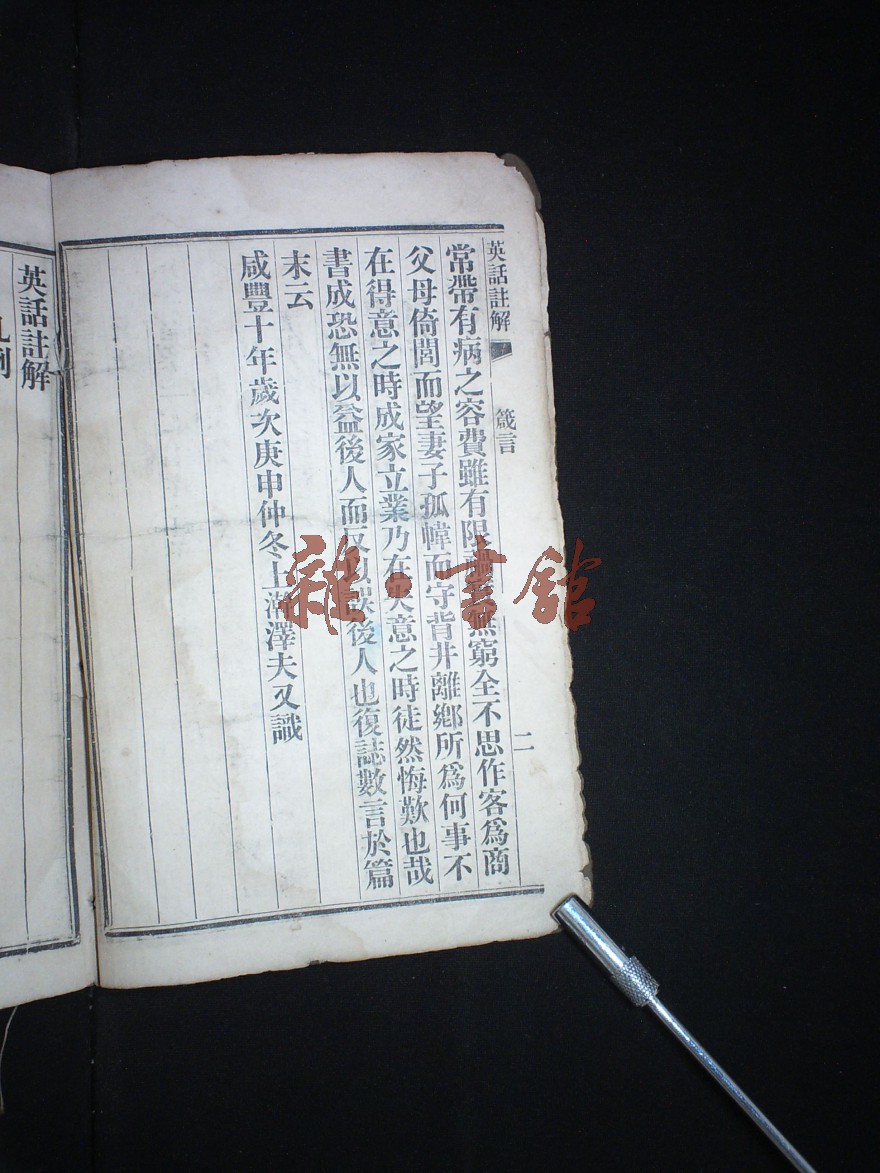 英話註解
箴言
二
常帶有病之容費雖有限 無窮全不思作客爲商
父母倚閭而望妻子孤幃而守背井離鄉所爲何事不
在得意之時成家立業乃在失意之時徒然悔歎也哉
書成恐無以益後人而反以誤後人也復誌數言於篇
末云
咸豐十年歲次庚申仲冬上澣澤夫又識
英話註解
凡例
雜·書館